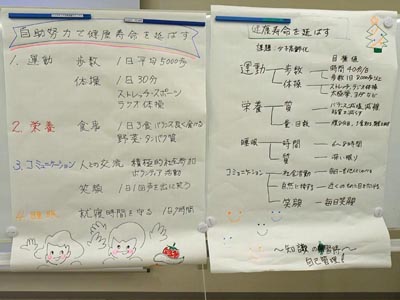 自助努力で健康寿命を延ばす
1. 運動 歩数 1日平均5000歩
体操 1日30分
ストレッチ・スポーツ
ラジオ体操
2. 栄養 食事 1日3食バランス良く食べる
野菜・タンパク質
3. コミュニケーション 人との交流 積極的社会参加
ボランティア活動
笑顔 1日1回声を出し笑う
4. 睡眠 就寝時間を守る 1日7時間
健康寿命を延ばす
課題・少子高齢化
目標値
運動 歩数 時間 40分/日
歩数 1日8000歩以上
体操 ストレッチ、ラジオ体操
栄養 質 バランス、減塩、減糖
量・回数
睡眠 時間 6〜8時間
質 深い眠り
コミュニケーション 社会活動
自然に接する
笑顔 毎日笑顔
〜知識の習得〜
自己管理!